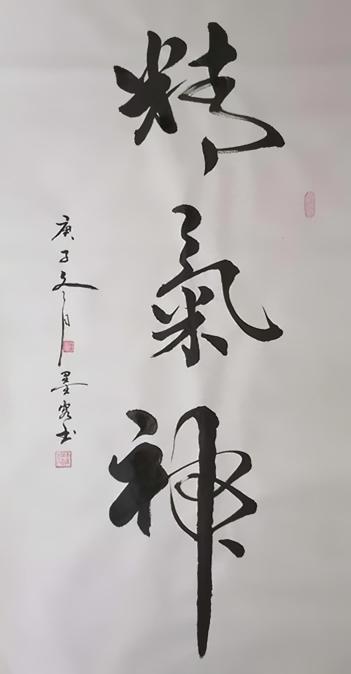 精氣神
庚子文月墨客书